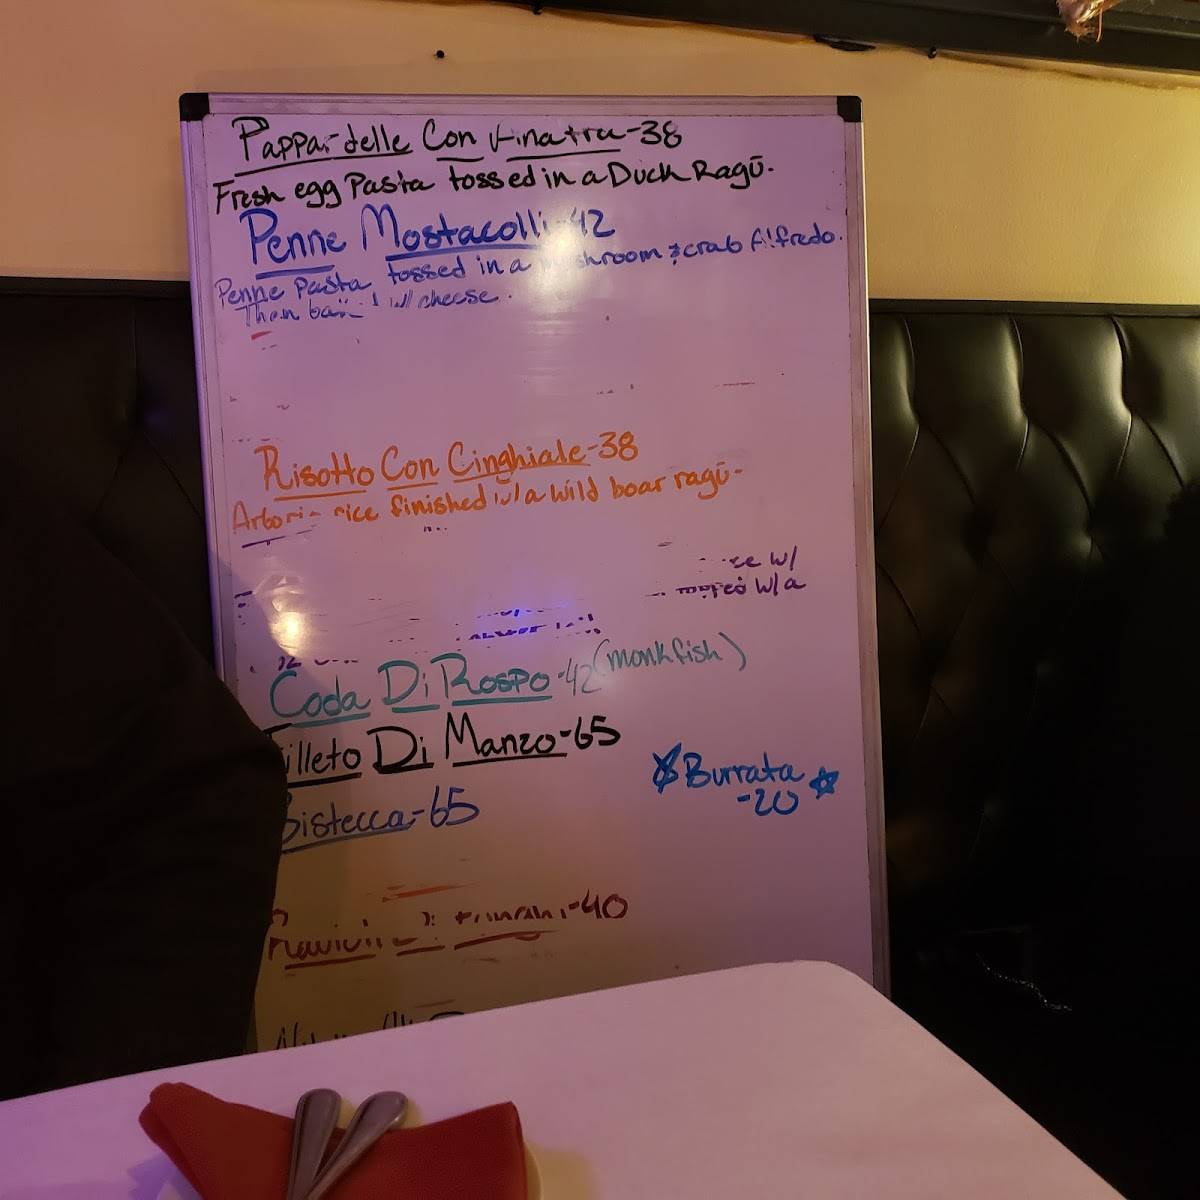 Pappardelle Con -38
Fresh egg Pasta tossed in a Duck Ragū.
Penne Mostacolli-42
Penne Pasta tossed in a mushroom & crab Alfredo.
Then w/ cheese.
Risotto Con Cinghiale-38
rice finished w/ a wild boar ragū-
w/
w/a
Coda Di Rospo-42 (monkfish)
Filleto Di Manzo-65
Bistecca-65
Burrata
-20
Ravioli Di -40